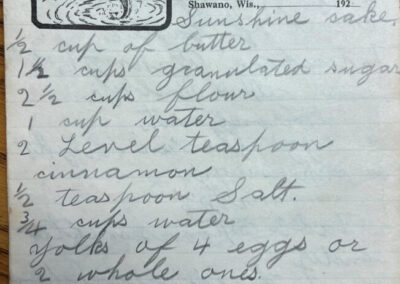 Shawano, Wis., 192
Sunshine sake.
1/2 cup of butter
1 1/2 cups granulated sugar
2 1/2 cups flour
1 cup water
2 Level teaspoon
cinnamon
1/2 teaspoon Salt.
3/4 cups water
Yolks of 4 eggs or
2 whole ones.